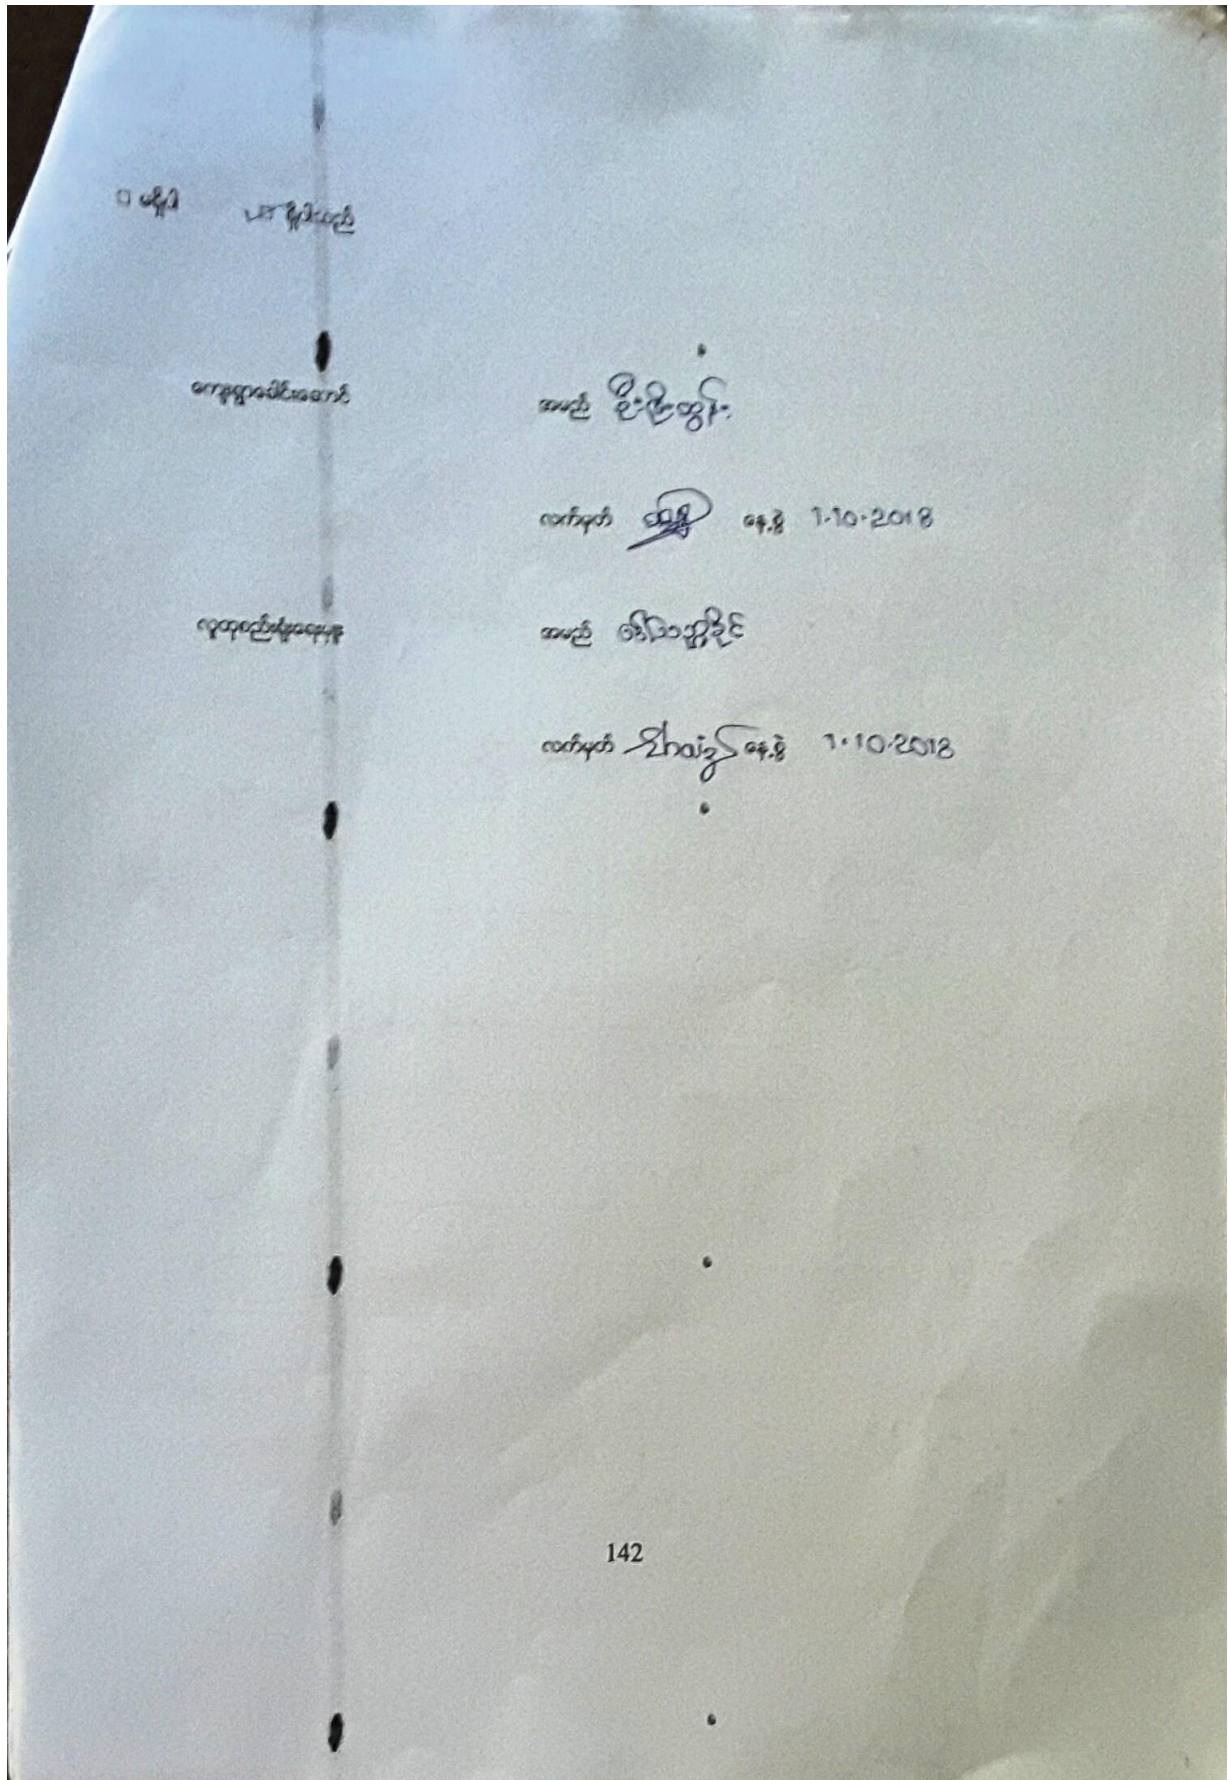 □ မရှိပါ ☑ ရှိပါသည်
ကျေးရွာခေါင်းဆောင် အမည် ဦးစိုးထွန်း
လက်မှတ် နေ့စွဲ 1-10-2018
လူထုစည်းရုံးရေးမှူး အမည်
လက်မှတ် နေ့စွဲ 1-10-2018
142